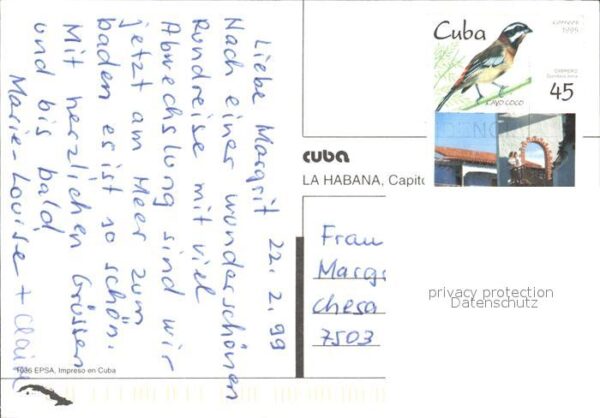 22. 2. 99
Liebe Margrit
Nach einer wunderschönen
Rundreise mit viel
Abwechslung sind wir
jetzt am Meer zum
baden es ist so schön.
Mit herzlichen Grüssen
und bis bald
Marie-Louise +
1036 EPSA, Impreso en Cuba
Cuba
correos
1995
CABRERO
45
CAYO COCO
cuba
LA HABANA, Capito
Frau
Marg
chesa
7503
privacy protection
Datenschutz